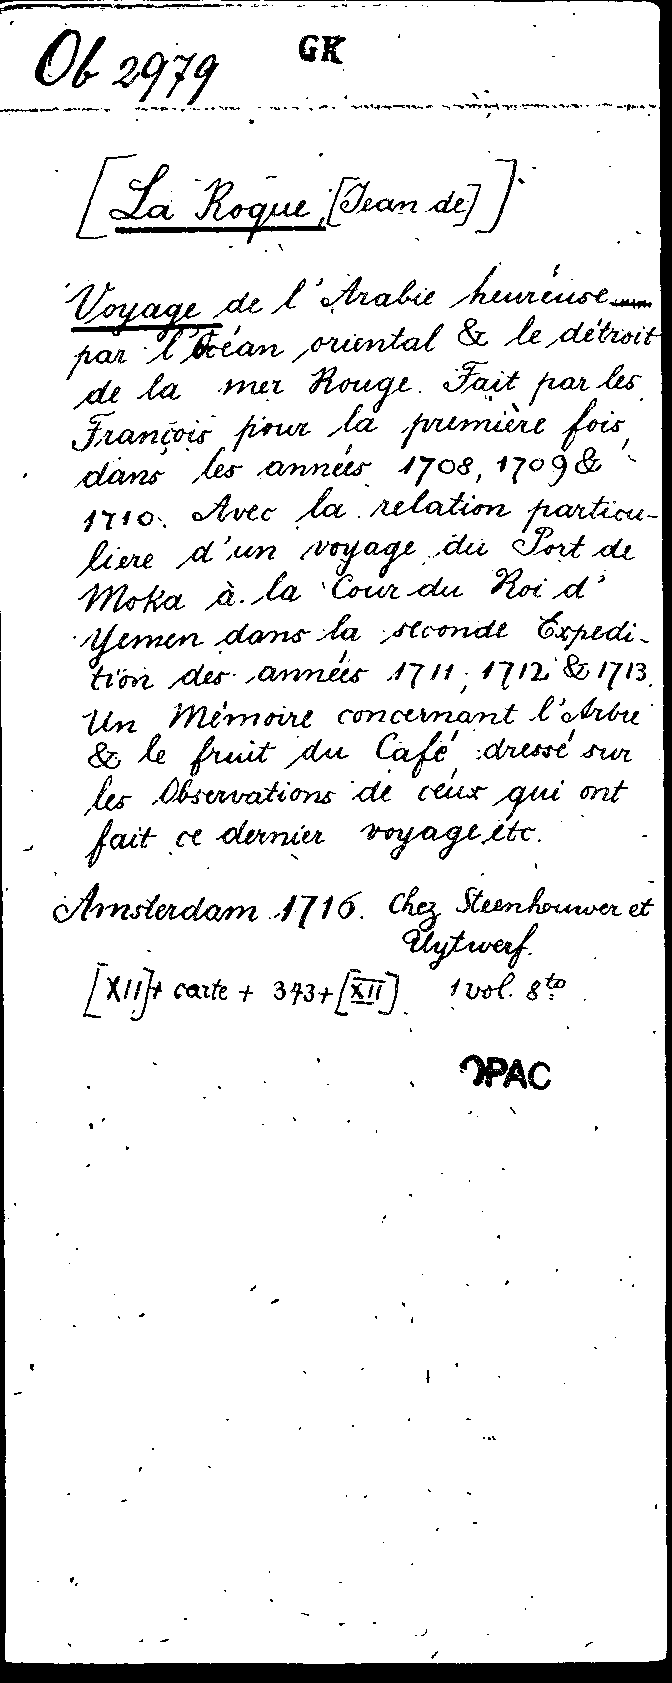 Ob 2979 GK
[La Roque, [Jean de]]
Voyage de l'Arabie heureuse
par l'Océan oriental & le détroit
de la mer Rouge. Fait par les
François pour la première fois,
dans les années 1708, 1709 &
1710. Avec la relation particu-
liere d'un voyage du Port de
Moka à la Cour du Roi d'
Yemen dans la seconde Expedi-
tion des années 1711, 1712 & 1713.
Un Mémoire concernant l'Arbre
& le fruit du Café dressé sur
les Observations de ceux qui ont
fait ce dernier voyage etc.
Amsterdam 1716. Chez Steenhouwer et
Uytwerf.
[XII]+ carte + 343+[XII] 1 vol. 8to
OPAC